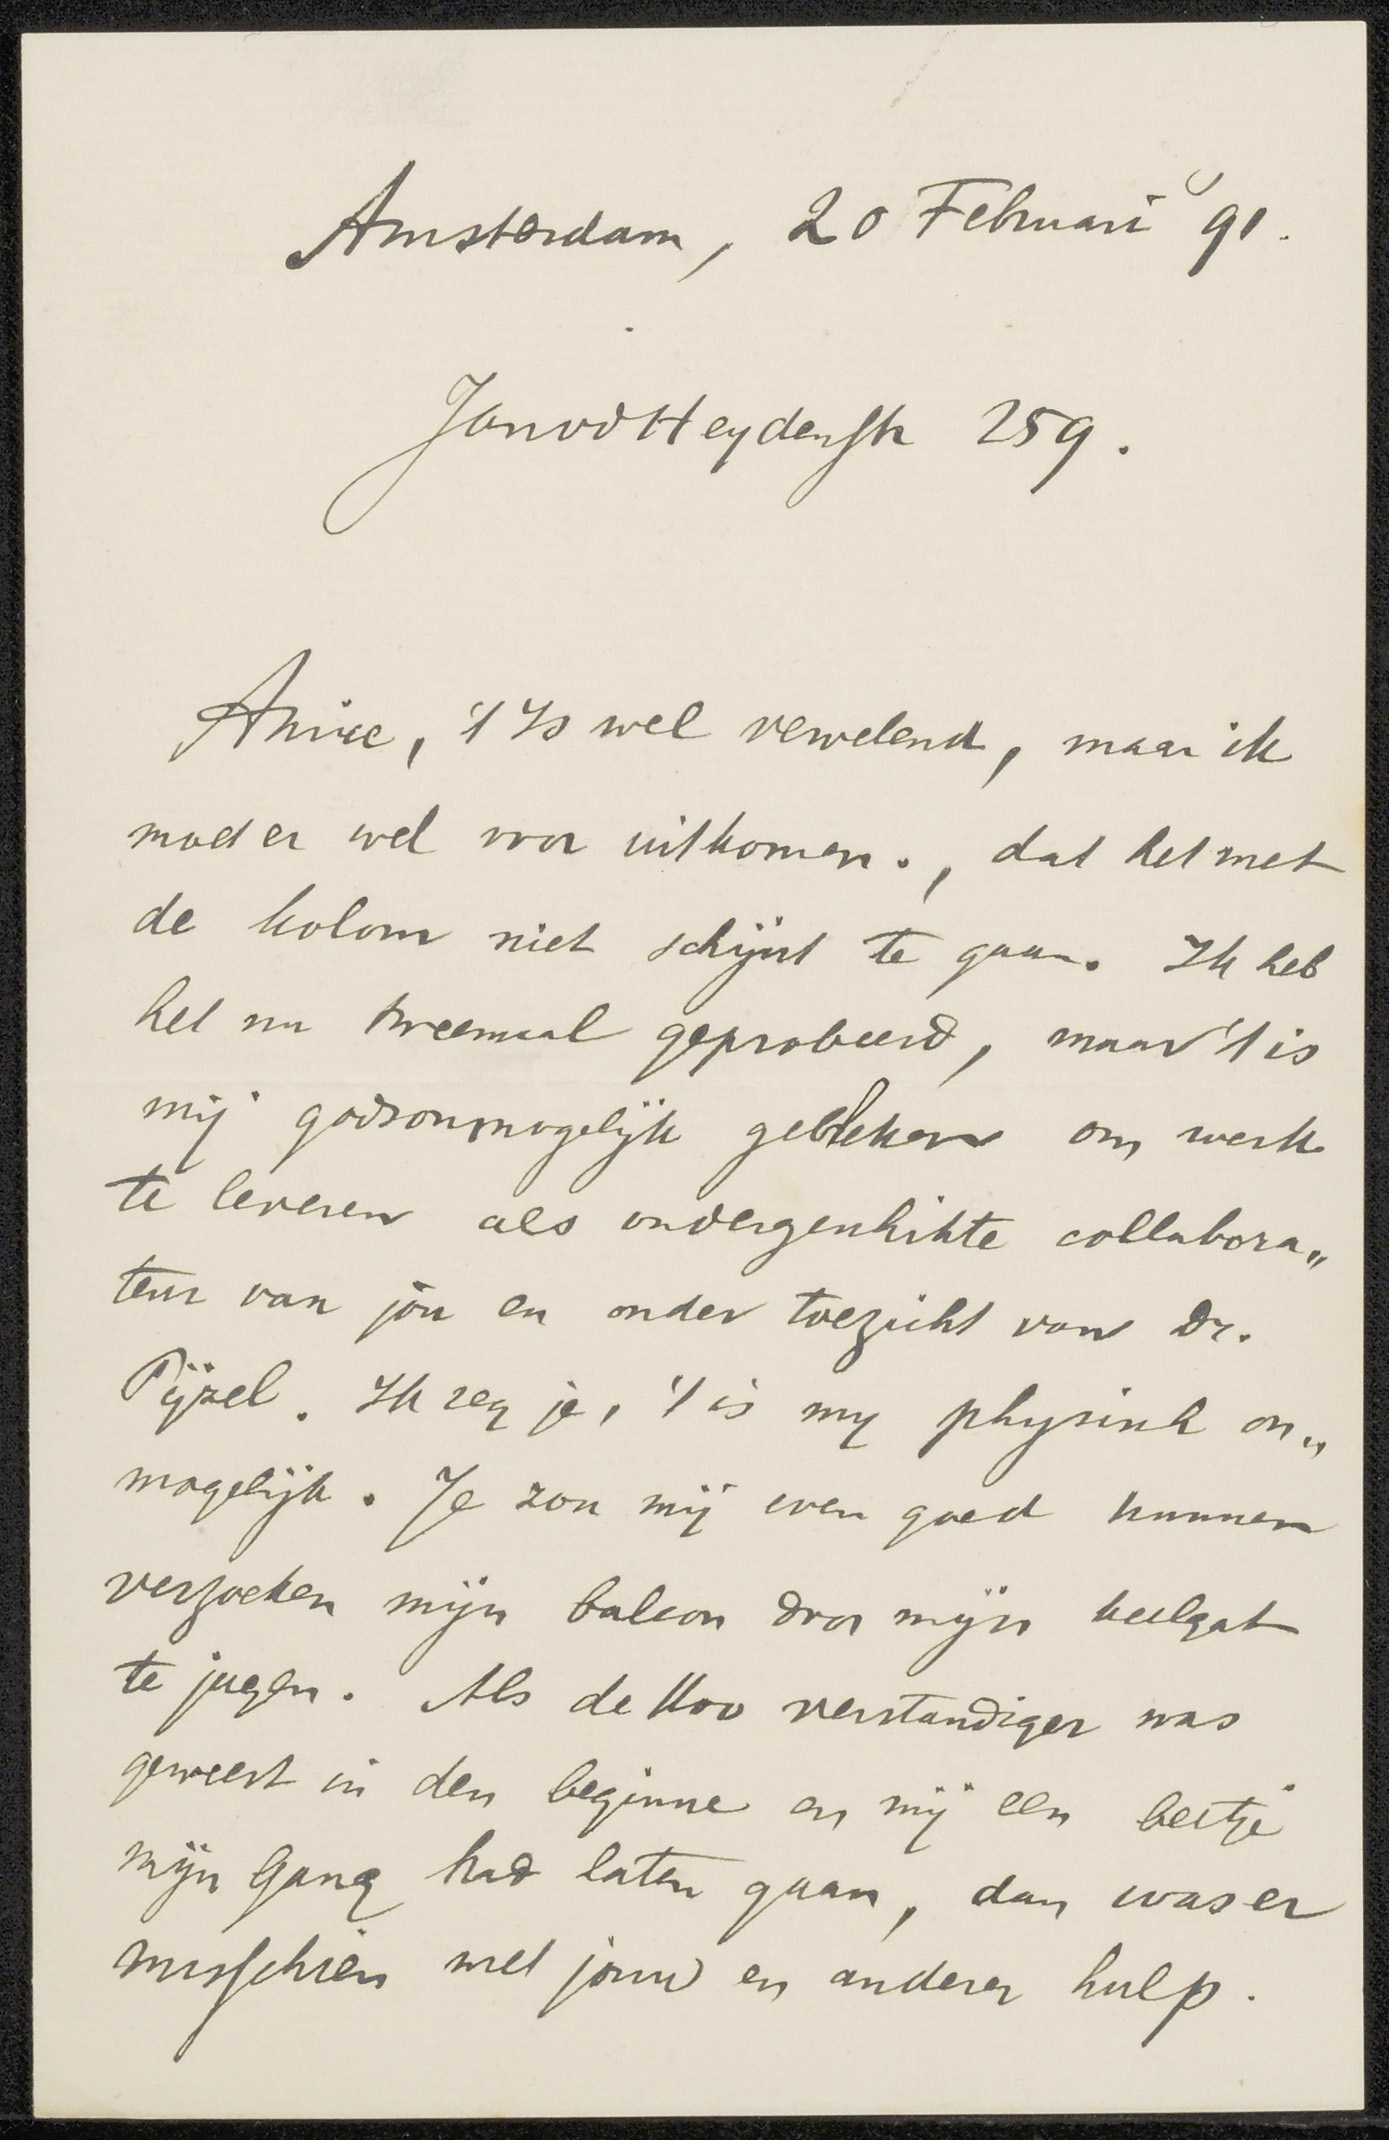 Amsterdam, 20 Februari 91.
JanvdHeydenstr 259.
Amice, 't Is wel vervelend, maar ik
moet er wel voor uitkomen., dat het met
de kolom niet schijnt te gaan. Ik heb
het nu tweemaal geprobeerd, maar 't is
mij godsonmogelijk gebleken om werk
te leveren als ondergeschikte collabora„
teur van jou en onder toezicht van Dr.
Pijzel. Ik zeg je, 't is my physiek on„
mogelijk. Je zou mij even goed kunnen
verzoeken mijn balcon door mijn keelgat
te jagen. Als de Koo verstandiger was
geweest in den beginne en mij een beetje
mijn gang had laten gaan, dan was er
misschien met jouw en anderer hulp.